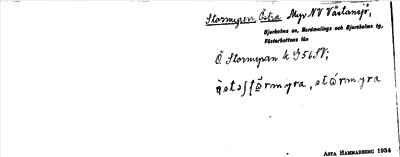 Stormyren Östra Myr NV Västansjö,
Bjurholms sn, Nordmalings och Bjurholms tg,
Västerbottens län
Ö Stormyran k I 56 SV;
stǿrmyra
ASTA HAMMARBERG 1934